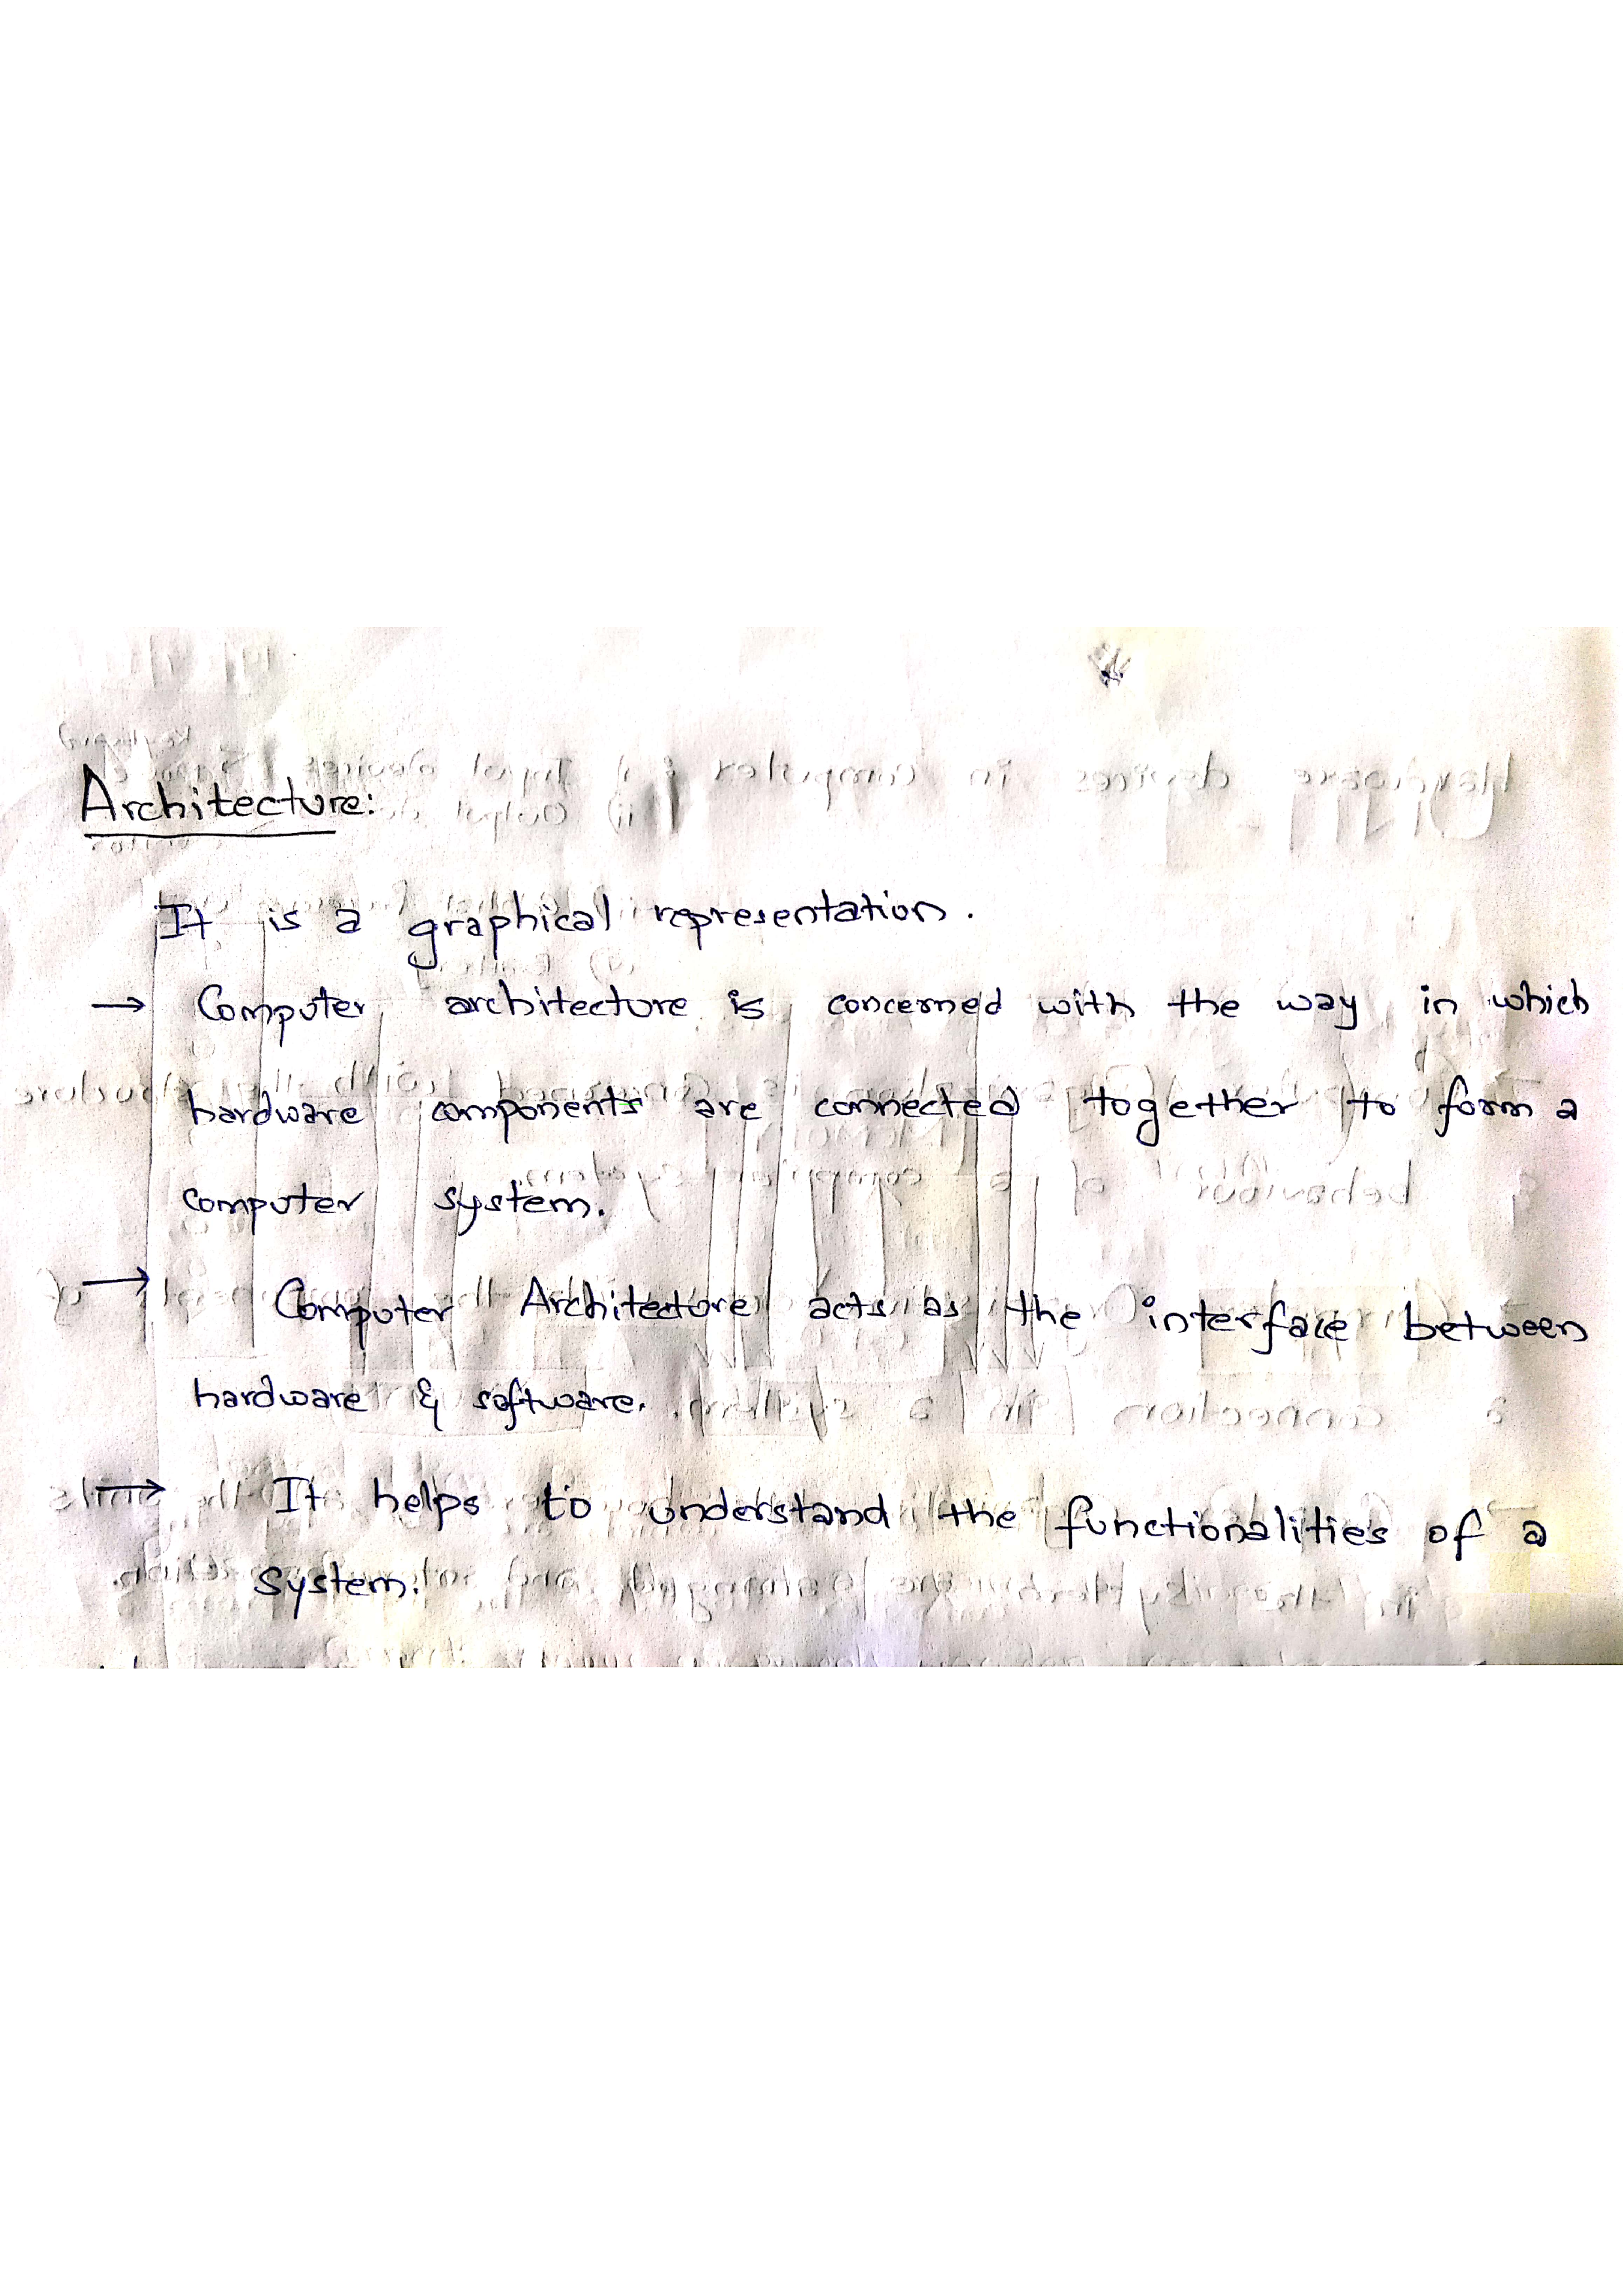 Architecture:
It is a graphical representation.
→ Computer architecture is concerned with the way in which
hardware components are connected together to form a
computer system.
→ Computer Architecture acts as the interface between
hardware & software.
→ It helps to understand the functionalities of a
system.